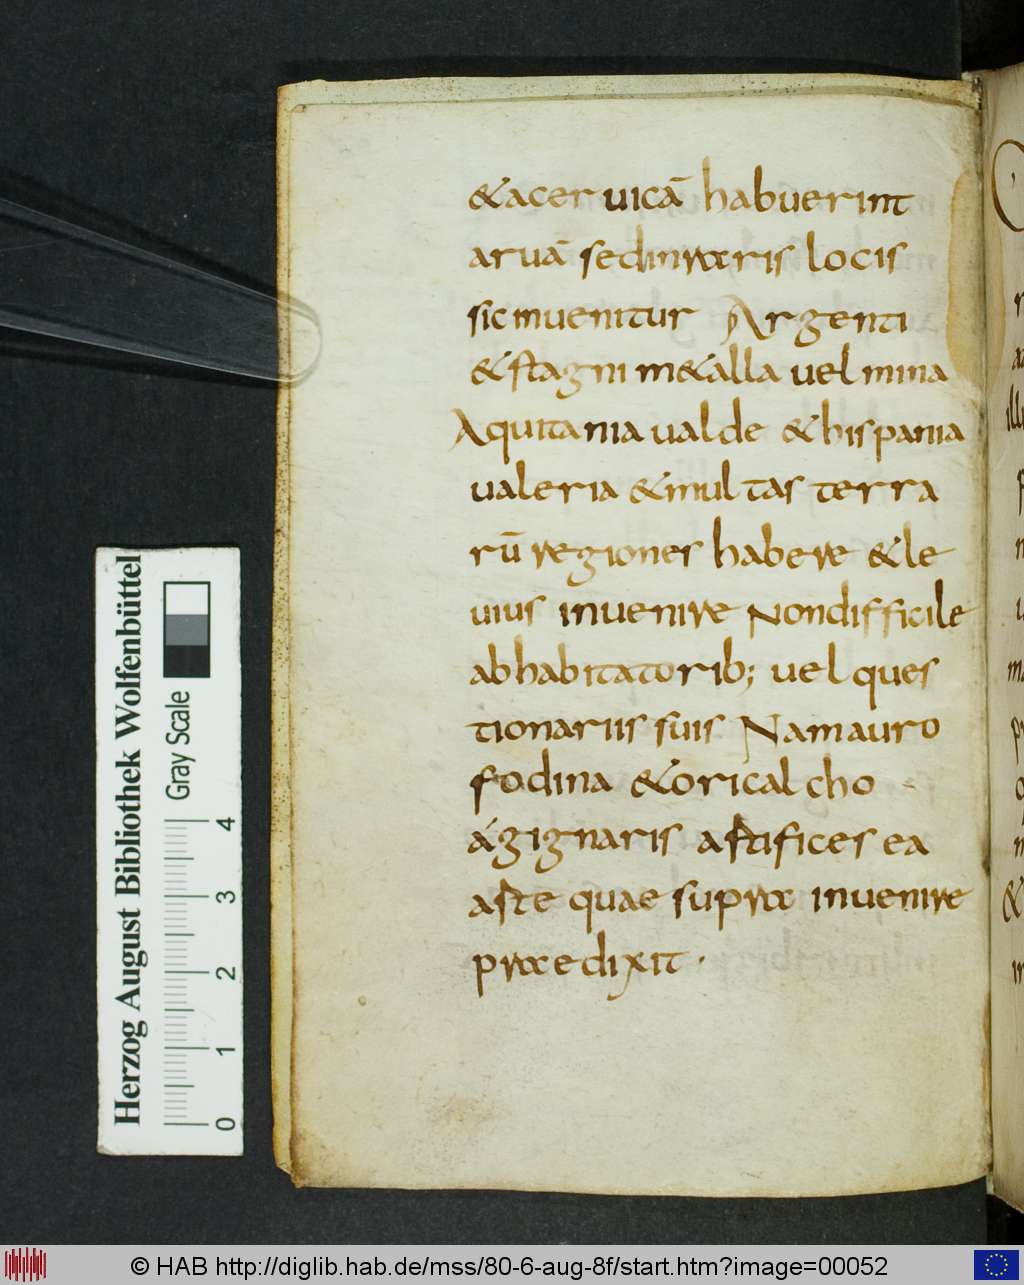 &acer uicā habuerint
aruā sedinraris locis
sic inuenitur Argenti
&stagni m&alla uel mina
Aquitania ualde &hispania
ualeria &multas terra
rū regiones habere &le
uius inuenire Nondifficile
abhabitatorib; uel ques
tionariis suis Namauro
fodina &oricalcho
agignaris astifices ea
aste quae supra inuenire
praedixit ·
Herzog August Bibliothek Wolfenbüttel
Gray Scale
0 1 2 3 4
© HAB http://diglib.hab.de/mss/80-6-aug-8f/start.htm?image=00052